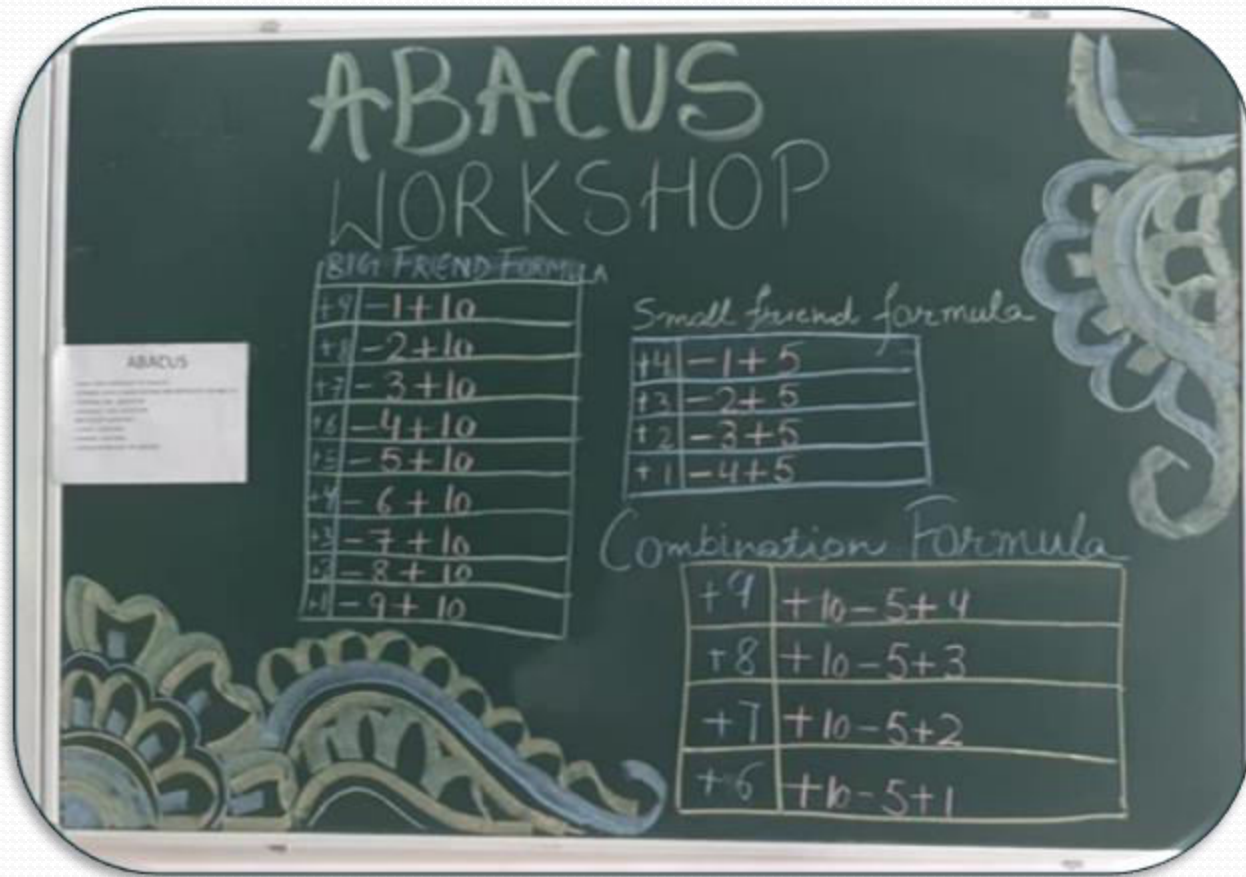 ABACUS
WORKSHOP
BIG FRIEND FORMULA
+9 -1+10
+8 -2+10
+7 -3+10
+6 -4+10
+5 -5+10
+4 -6+10
+3 -7+10
+2 -8+10
+1 -9+10
Small friend formula
+4 -1+5
+3 -2+5
+2 -3+5
+1 -4+5
Combination Formula
+9 +10-5+4
+8 +10-5+3
+7 +10-5+2
+6 +10-5+1
ABACUS